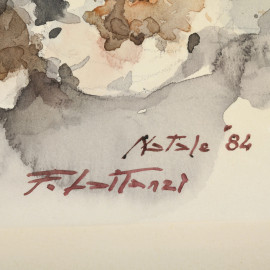 Natale '84
F. Lattanzi